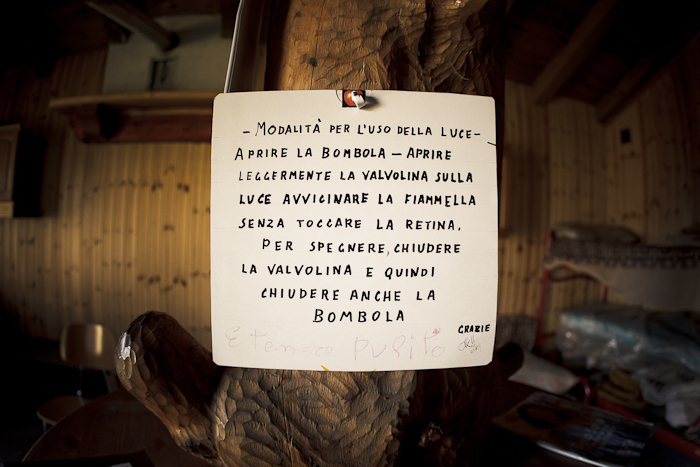 - MODALITÀ PER L'USO DELLA LUCE -
APRIRE LA BOMBOLA - APRIRE
LEGGERMENTE LA VALVOLINA SULLA
LUCE AVVICINARE LA FIAMMELLA
SENZA TOCCARE LA RETINA.
PER SPEGNERE, CHIUDERE
LA VALVOLINA E QUINDI
CHIUDERE ANCHE LA
BOMBOLA
GRAZIE
E tenere pulito